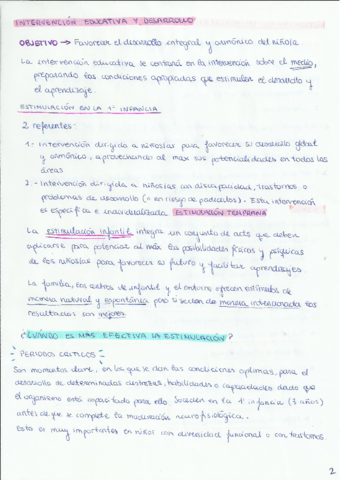 INTERVENCIÓN EDUCATIVA Y DESARROLLO
OBJETIVO → Favorecer el desarrollo integral y armónico del niño/a
La intervención educativa se centrará en la intervención sobre el medio,
preparando las condiciones apropiadas que estimulen el desarrollo y
el aprendizaje.
ESTIMULACIÓN EN LA 1ª INFANCIA
2 referentes:
1.- Intervención dirigida a niños/as para favorecer su desarrollo global
y armónico, aprovechando al max sus potencialidades en todas las
áreas
2.- Intervención dirigida a niños/as con discapacidad, trastornos o
problemas de desarrollo (o en riesgo de padecerlos). Esta intervención
es específica e individualizada ESTIMULACIÓN TEMPRANA
La estimulación infantil integra un conjunto de acts que deben
aplicarse para potenciar al máx las posibilidades físicas y psíquicas
de los niños/as para favorecer su futuro y facilitar aprendizajes.
La familia, los centros de infantil y el entorno ofrecen estímulos de
manera natural y espontánea pero si se dan de manera intencionada los
resultados son mejores
¿CUÁNDO ES MÁS EFECTIVA LA ESTIMULACIÓN?
- PERIODOS CRÍTICOS -
Son momentos clave, en los que se dan las condiciones óptimas, para el
desarrollo de determinadas destrezas, habilidades o capacidades dado que
el organismo está capacitado para ello. Suceden en la 1ª infancia (3 años)
antes de que se complete la maduración neurofisiológica.
Esto es muy importantes en niños con diversidad funcional o con trastornos
2